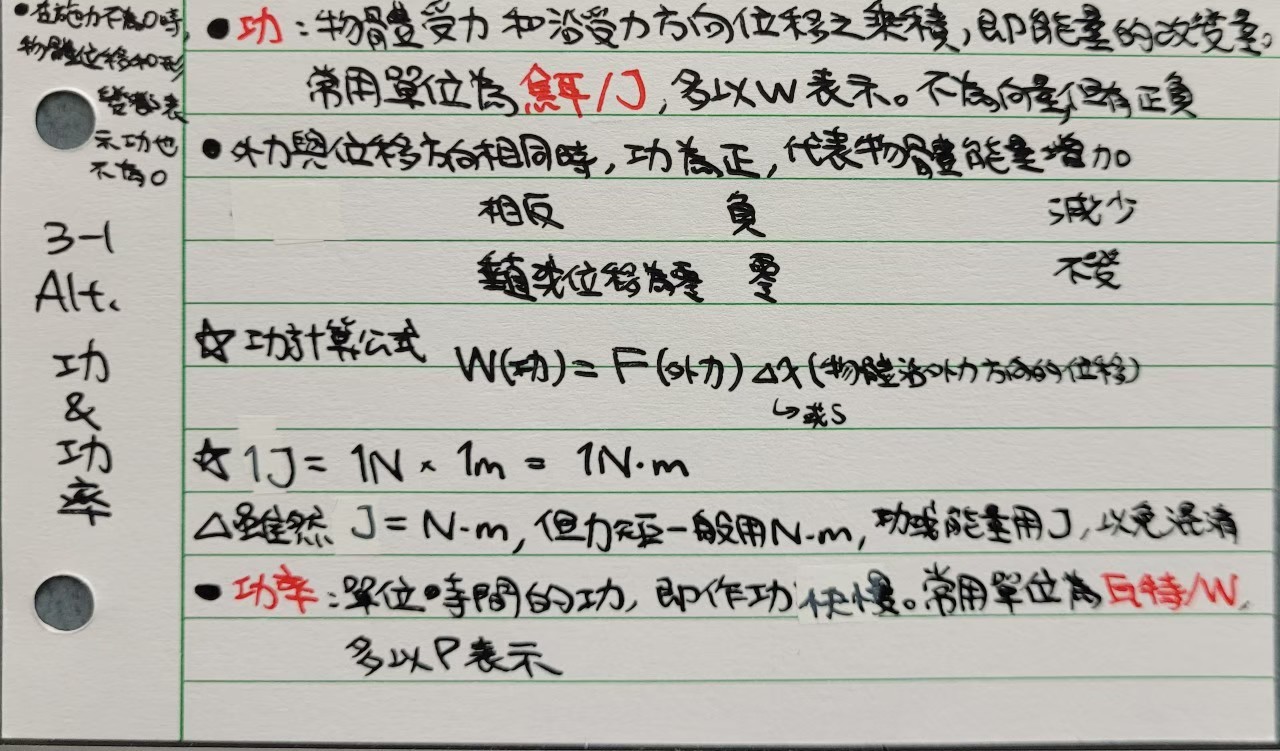 •在施力不為0時,
物體位移和形
變數表
示功也
不為0
3-1
Alt.
功
&
功
率
•功:物體受力和沿受力方向位移之乘積,即能量的改變量。
常用單位為焦耳/J,多以W表示。不為向量,但有正負
•外力與位移方向相同時,功為正,代表物體能量增加。
相反 負 減少
垂直或位移為零 零 不變
☆功計算公式
W(功)=F(外力)△x(物體沿外力方向的位移)
↳或S
☆1J=1N×1m=1N·m
△雖然 J=N·m,但力矩一般用N·m,功或能量用J,以免混淆
•功率:單位時間的功,即作功快慢。常用單位為瓦特/W,
多以P表示